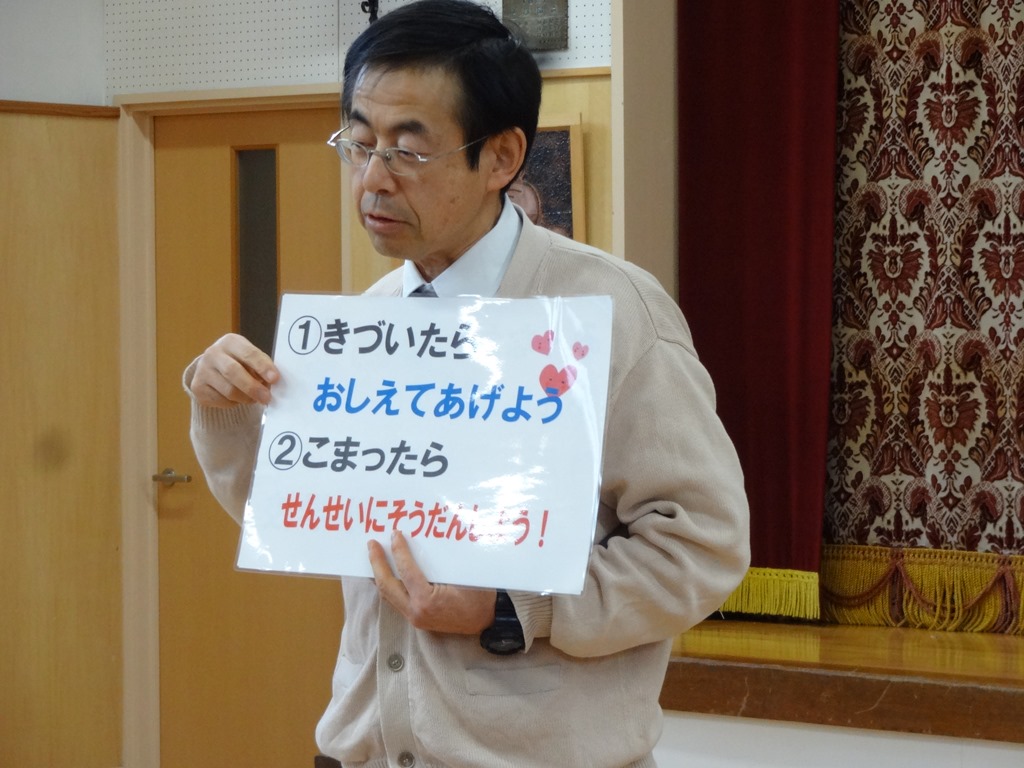 ①きづいたら
おしえてあげよう
②こまったら
せんせいにそうだんしよう！